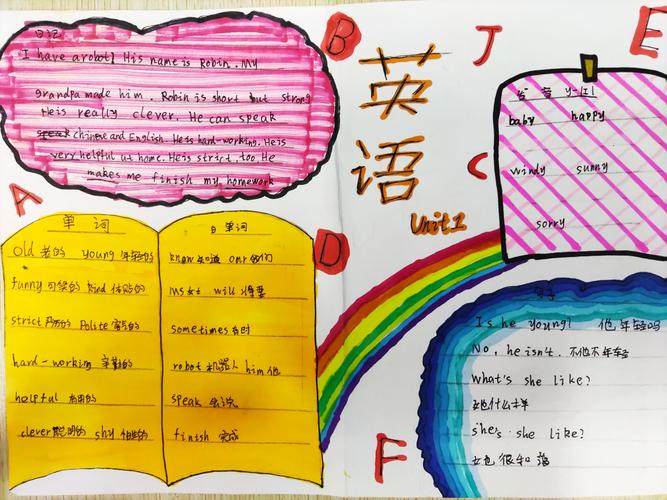 日记
I have a robot! His name is Robin. My
grandpa made him. Robin is short but strong
He is really clever. He can speak
chinese and English. He is hard-working. He is
very helpful at home. He is strict, too He
makes me finish my homework
A
B
英语
Unit 1
J
E
C
y=[i]
baby happy
windy sunny
sorry
D
单词
old 老的 young 年轻的
funny 可笑的 kind 体贴的
strict 严厉的 Polite 客气的
hard-working 辛勤的
helpful 有用的
clever 聪明的 shy 的
日单词
know 知道 our 我们
Ms 女士 will 将要
sometimes 有时
robot 机器人 him 他
speak 会说
finish 完成
F
句子
Is he young? 他年轻吗
No, he isn't. 不他不年轻
What's she like?
她什么样
she's she like?
她很和蔼